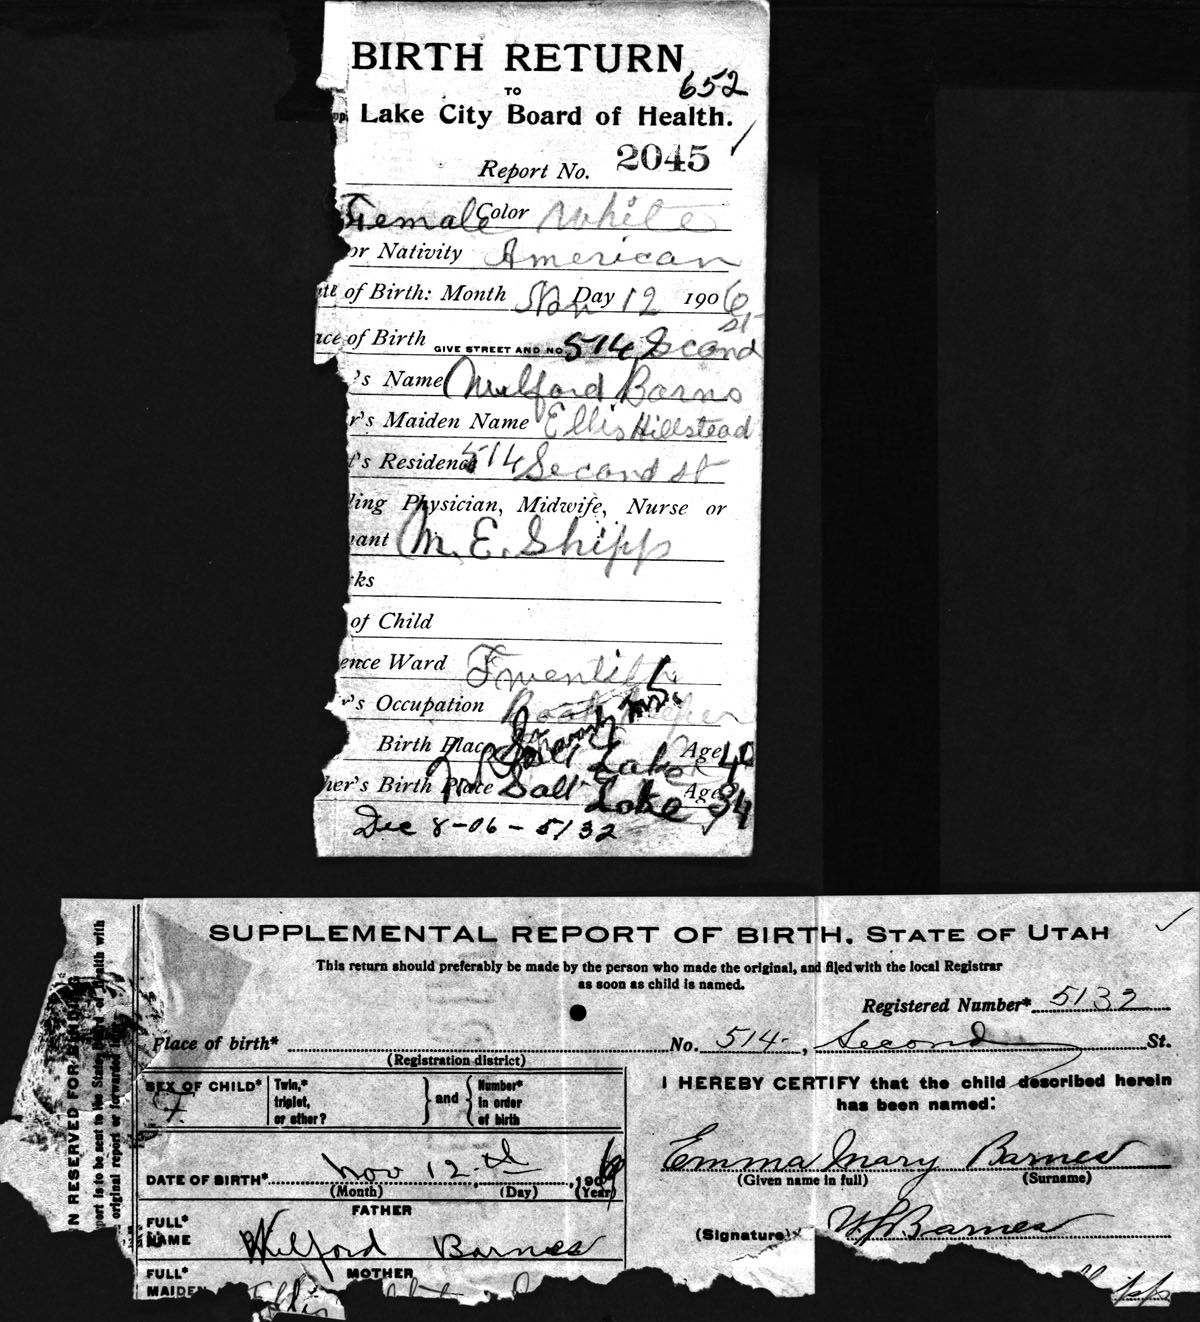 BIRTH RETURN
652
TO
Lake City Board of Health.
Report No. 2045
Female Color White
or Nativity American
of Birth: Month Nov Day 12 1906
ace of Birth GIVE STREET AND NO 514 Second st
's Name Milford Barns
r's Maiden Name Ellis Hillstead
t's Residence 514 Second st
ling Physician, Midwife, Nurse or
ant M. E. Shipp
ks
of Child
ence Ward Twentieth
r's Occupation Book keeper
Birth Place Salt Lake Age 40
her's Birth Place Salt Lake Age 34
Dec 8-06-5132
SUPPLEMENTAL REPORT OF BIRTH. STATE OF UTAH
This return should preferably be made by the person who made the original, and filed with the local Registrar
as soon as child is named.
Registered Number* 5132
Place of birth* No. 514-, Second St.
(Registration district)
SEX OF CHILD* F
Twin,* triplet, or other?
and
Number* in order of birth
I HEREBY CERTIFY that the child described herein
has been named:
Emma Mary Barnes
(Given name in full) (Surname)
DATE OF BIRTH* Nov 12th, 1906
(Month) (Day) (Year)
FATHER
FULL* NAME Wilford Barnes
(Signature) W Barnes
FULL* MOTHER
MAIDEN
N RESERVED FOR BINDING
port is to be sent to the State Board of Health with
original report or forwarded